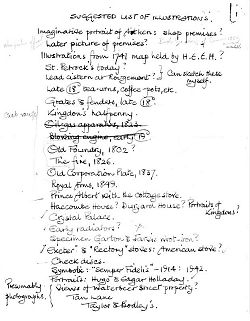 SUGGESTED LIST OF ILLUSTRATIONS.
Imaginative portrait of shop premises?
Later picture of premises?
Illustrations from 1741 map held by H.E.E.H.?
St. Petrock's today?
Lead cistern or ? } Can sketch these myself.
Late 18th tea-urns, coffee-pots, etc.
Grates & fenders, late 18th.
Kingdon's halfpenny.
Oil gas apparatus, 18
blowing engine, early 19th?
Old Foundry, 1802?
The fire, 1826.
Old Corporation Plate, 1837.
Royal Arms, 1849.
Prince Albert with the cottage stove.
Haccombe House? Duryard House? Portraits of Kingdons?
Crystal Palace.
Early radiators?
Specimen Garton & Jarvis
Exeter & "Rectory" stoves: American stove?
Check dates.
Symbols: "Semper Fidelis" - 1914: 1942.
Portraits: Hugo & Edgar Holladay?
Presumably photographs.
Views of Waterbeer Street property?
Tan Lane
Taylor & Bodley's.